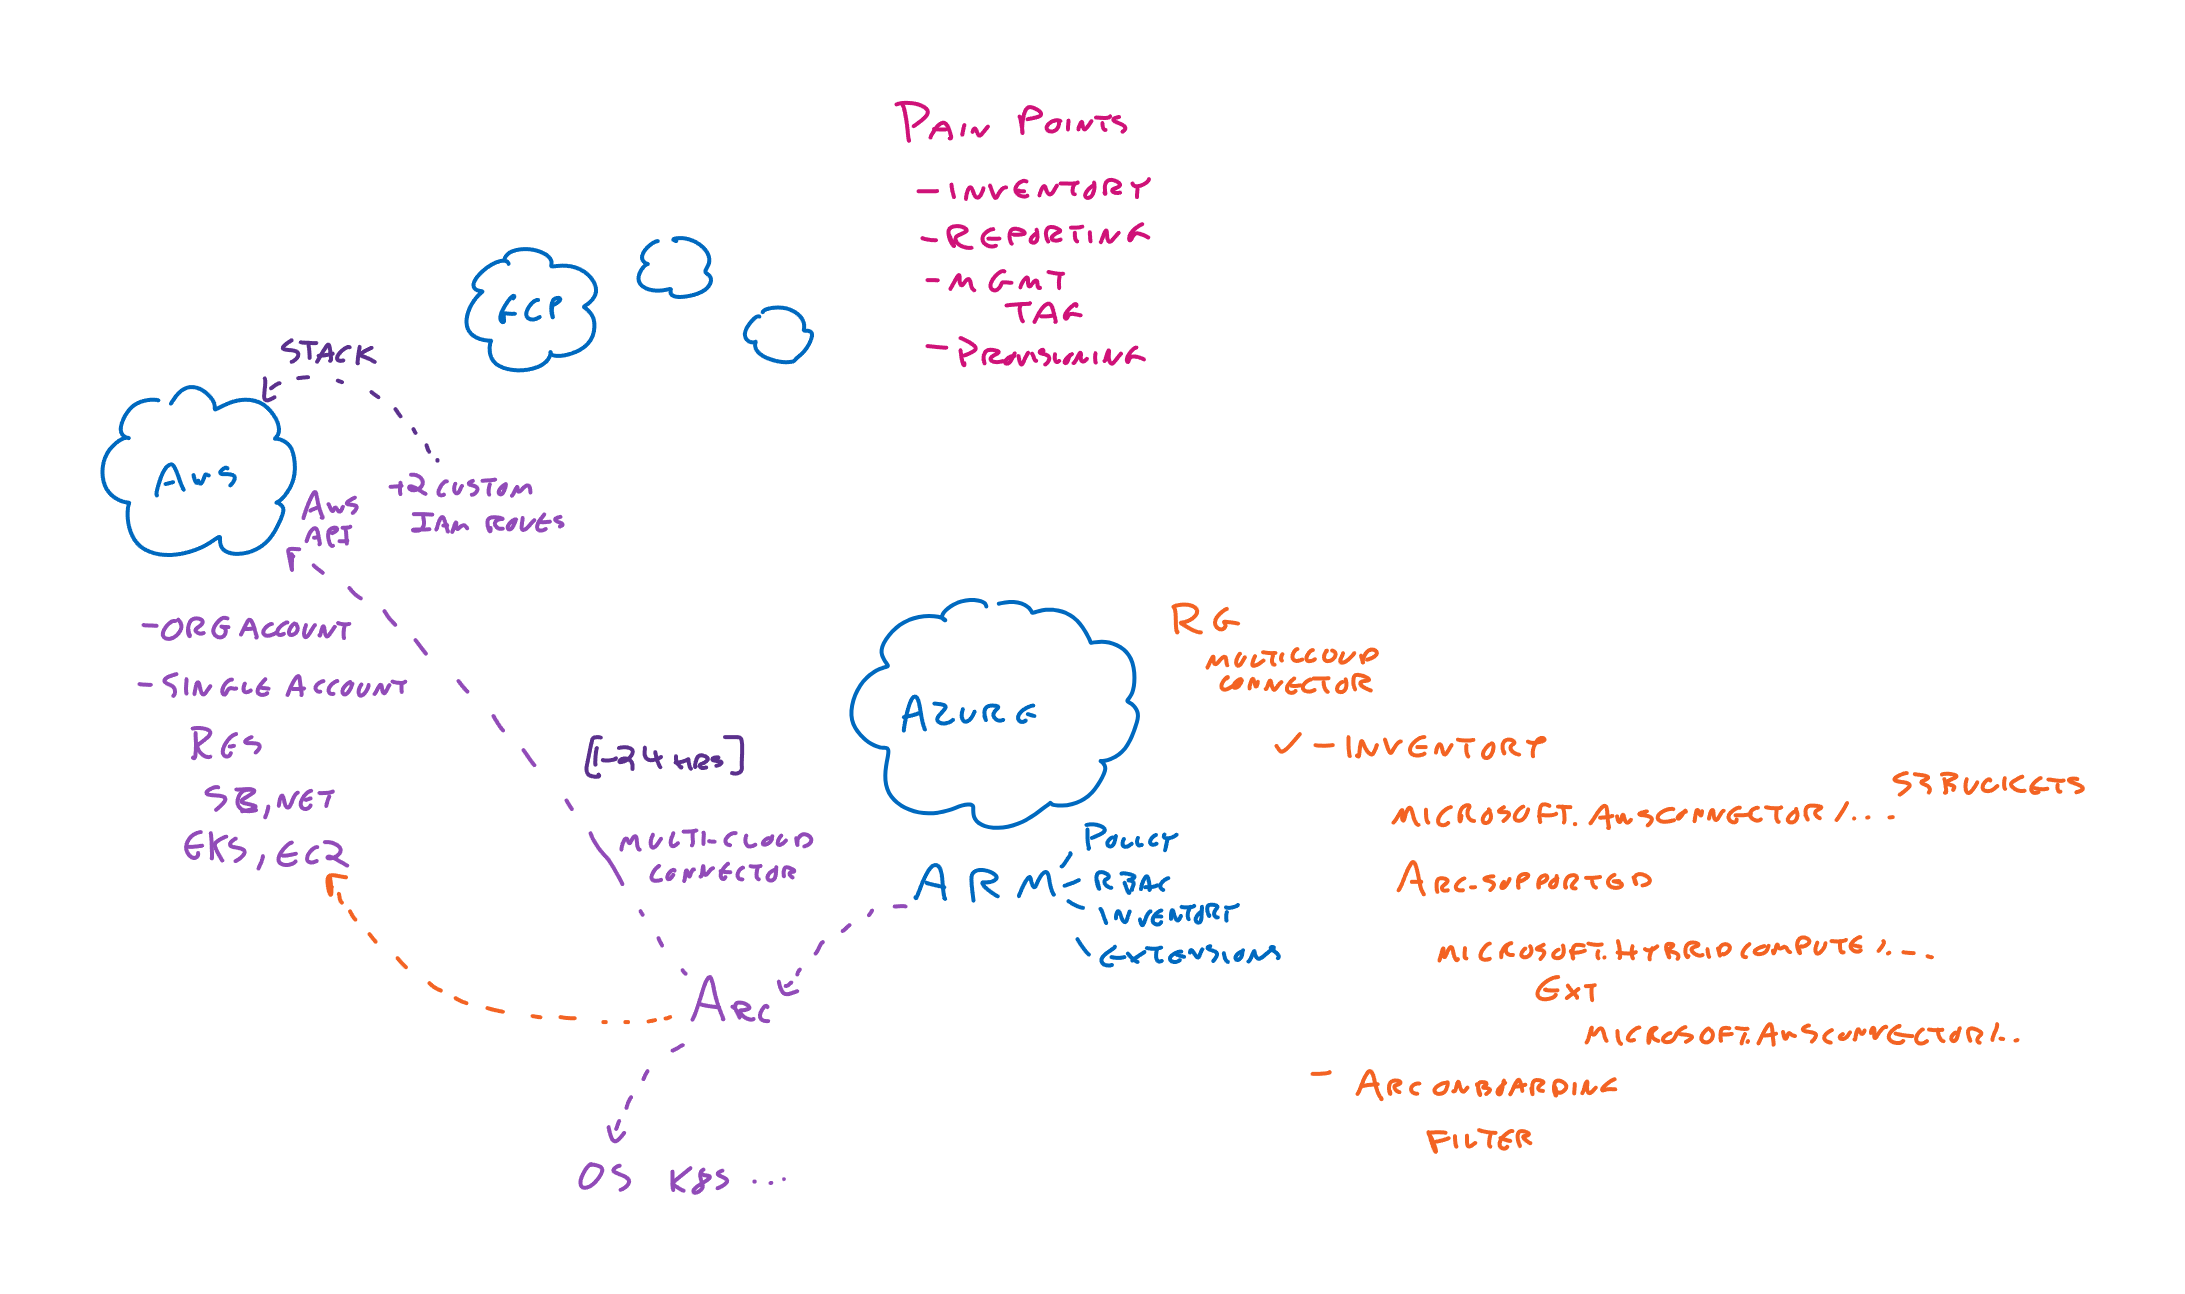 PAIN POINTS
- INVENTORY
- REPORTING
- MGMT
TAG
- PROVISIONING
GCP
STACK
AWS
AWS
API
+2 CUSTOM
IAM ROLES
- ORG ACCOUNT
- SINGLE ACCOUNT
RES
S3, NET
EKS, EC2
[1-24 HRS]
MULTI-CLOUD
CONNECTOR
ARC
OS K8S ...
AZURE
ARM
POLICY
RBAC
INVENTORY
EXTENSIONS
RG
MULTICLOUD
CONNECTOR
✓ - INVENTORY
S3 BUCKETS
MICROSOFT.AWSCONNECTOR/...
ARC-SUPPORTED
MICROSOFT.HYBRIDCOMPUTE/...
EXT
MICROSOFT.AWSCONNECTOR/..
- ARC ONBOARDING
FILTER